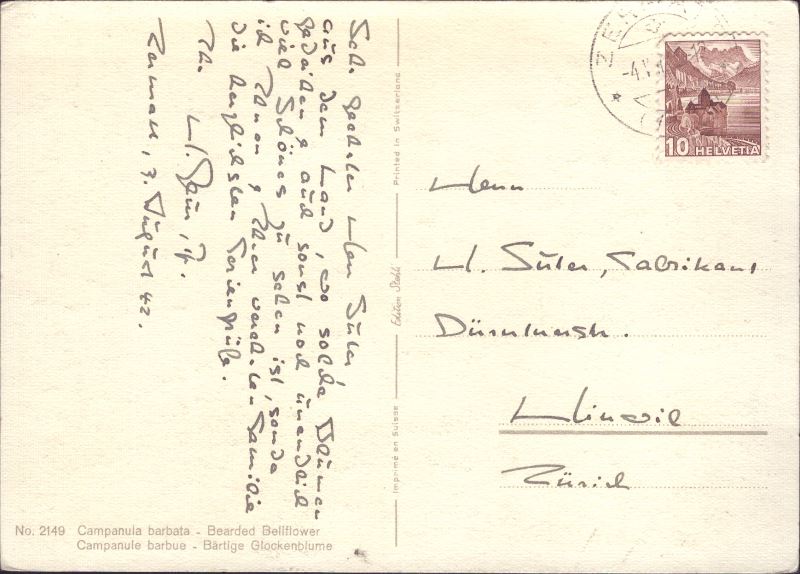 Sehr geehrter Herr Suter,
aus dem Land, wo solche Blumen
gedeihen & auch sonst noch unendlich
viel Schönes zu sehen ist, sende
ich Ihnen & Ihrer verehrten Familie
die herzlichsten Feriengrüße.
Ihr
Zermatt, 3. August 42.
Imprimé en Suisse
Edition Stehli
Printed in Switzerland
10 HELVETIA
Herrn
H. Suter, Fabrikant
Dürntnerstr.
Hinwil
Zürich
No. 2149 Campanula barbata - Bearded Bellflower
Campanule barbue - Bärtige Glockenblume